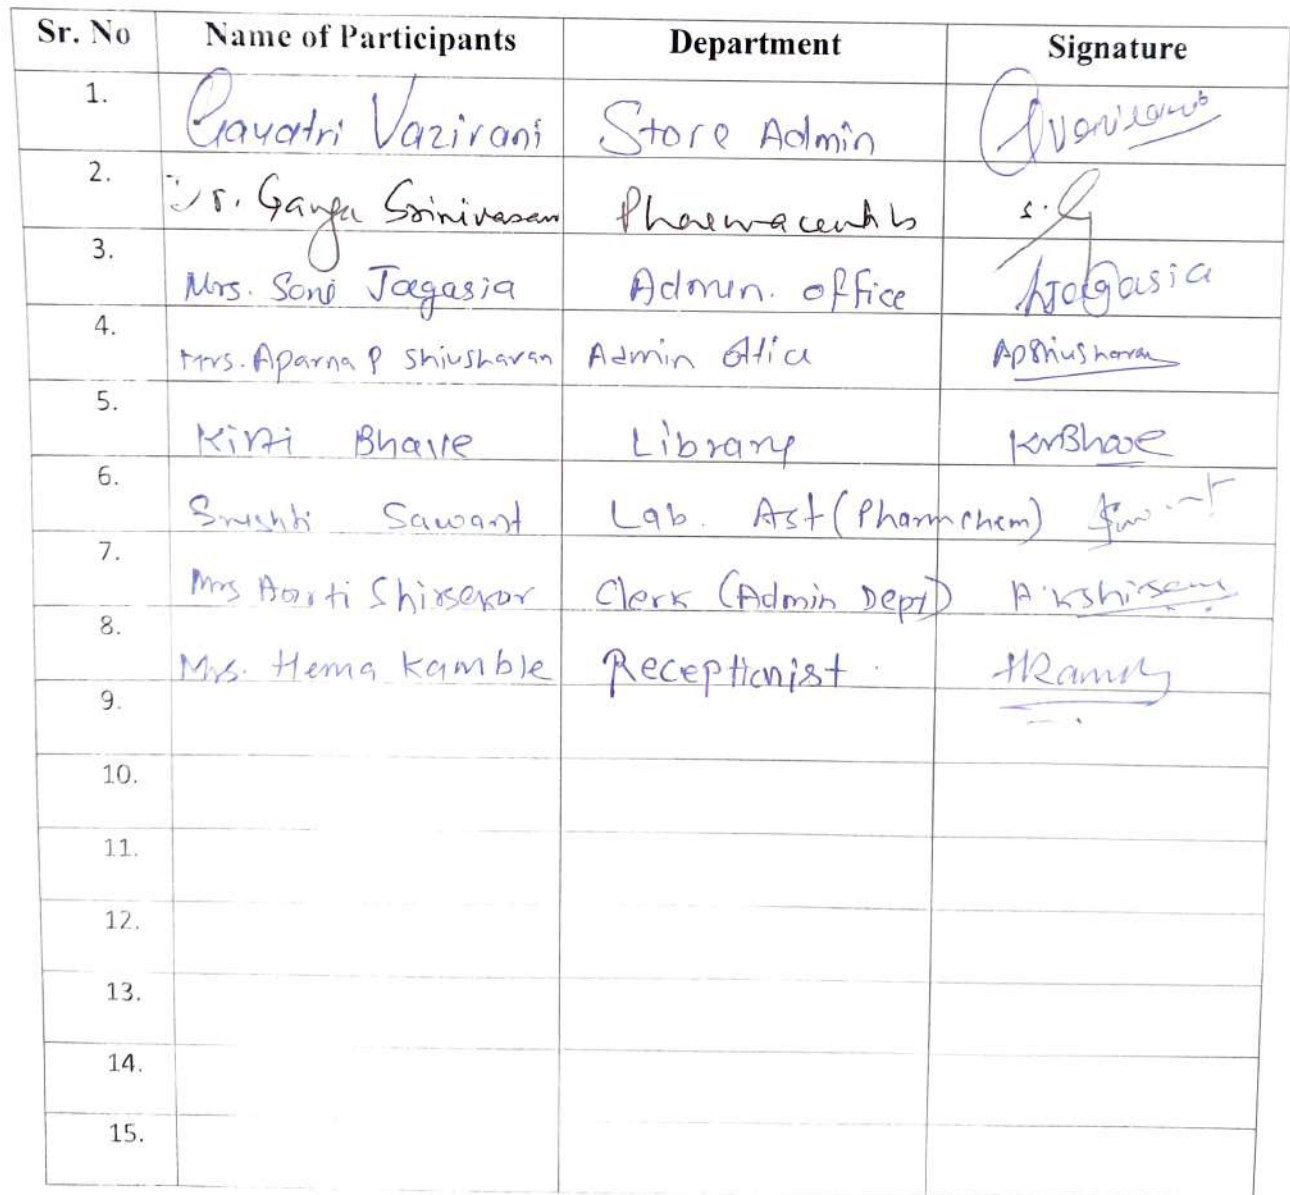 Sr. No Name of Participants Department Signature
1. Gayatri Vazirani Store Admin
2. Dr. Ganga Srinivasan Pharmaceutics S.G
3. Mrs. Soni Jagasia Admin. office Jagasia
4. Mrs. Aparna P Shivsharan Admin Office APShivsharan
5. Kirti Bhave Library KMBhave
6. Srushti Sawant Lab. Ast (Pharm chem)
7. Mrs Aarti Shirsekar Clerk (Admin Dept)
8. Mrs. Hema Kamble Receptionist
9.
10.
11.
12.
13.
14.
15.